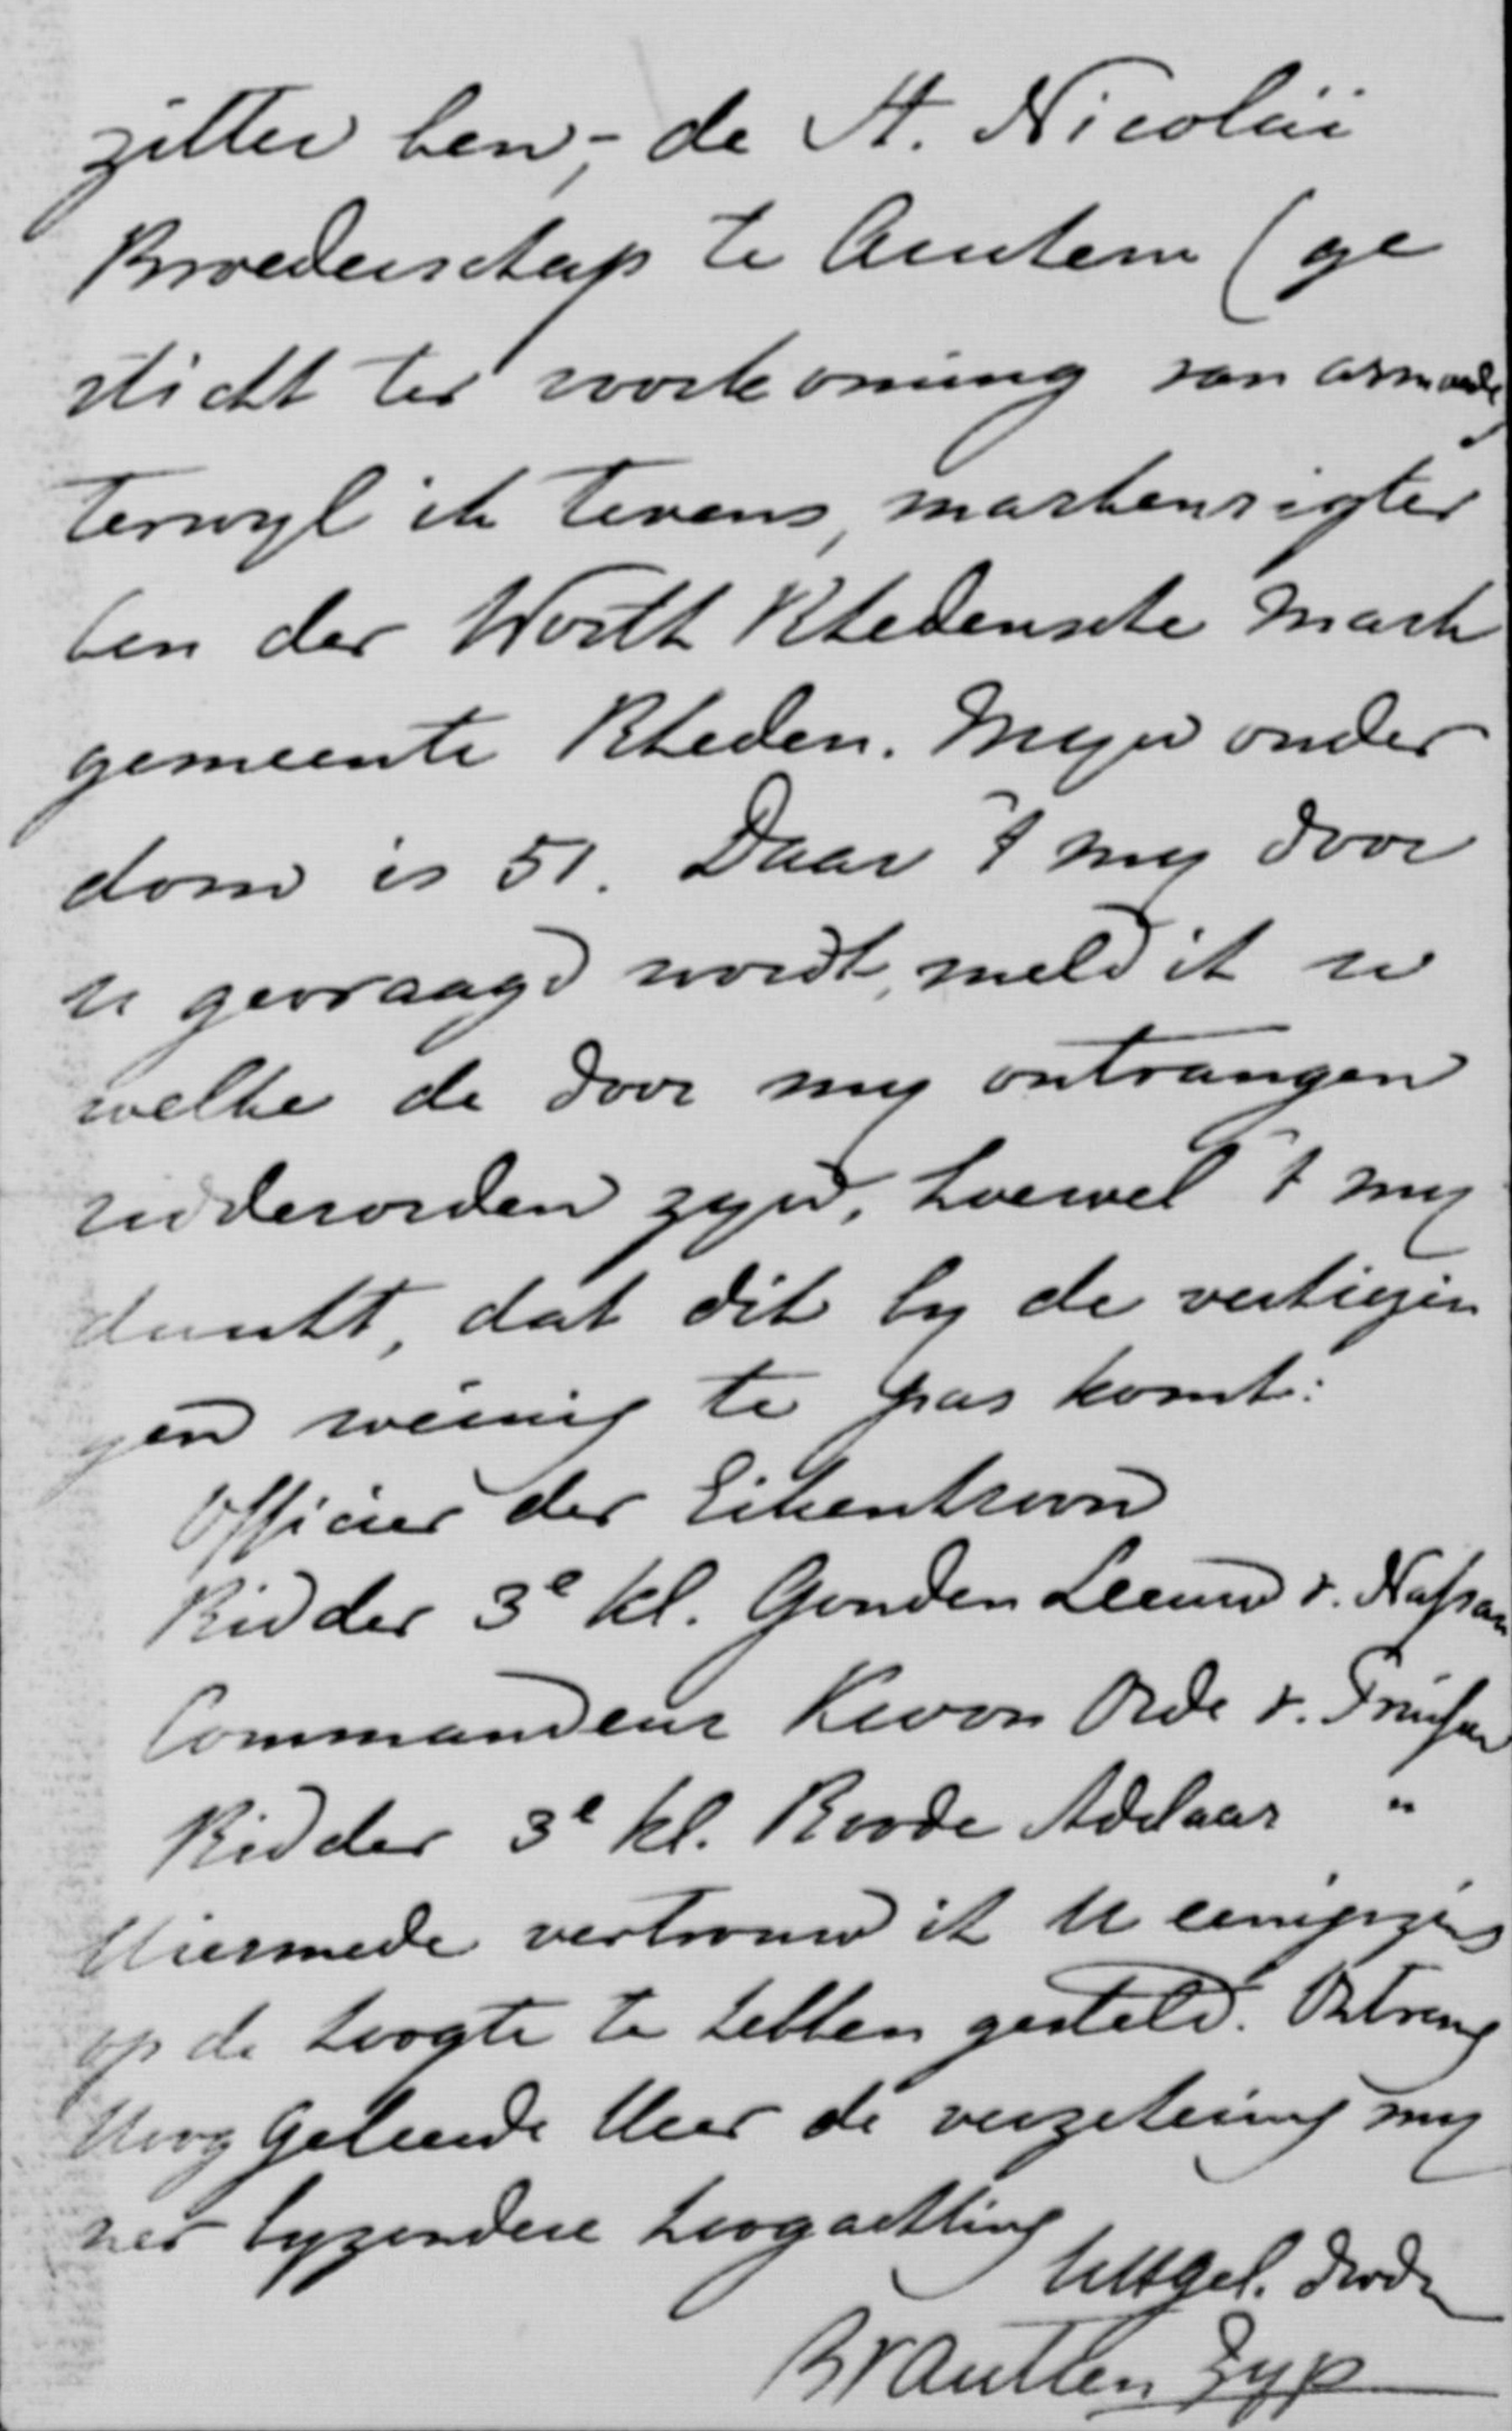 zitter ben,- de St. Nicolaï
Broederschap te Arnhem (ge
sticht ter voorkoming van armoede,
terwyl ik tevens, markenrigter
ben der Worth Rhedensche Mark
gemeente Rheden. Myn ouder
dom is 51. Daar 't my door
U gevraagd wordt, meld ik U
welke de door my ontvangen
ridderorden zyn, hoewel 't my
dunkt, dat dit by de vestigin
gen weinig te pas komt:
Officier der Eikenkroon
Ridder 3e kl. Gouden Leeuw v. Nassau
Commandeur Kroon Orde v. Pruisen
Ridder 3e kl. Roode Adelaar "
Hiermede vertrouw ik U eenigzins
op de hoogte te hebben gesteld. Ontvang
Hoog Geleerde Heer de verzekering my
ner byzondere hoogachting
UHgel. dwdr
Brantsen Zyp